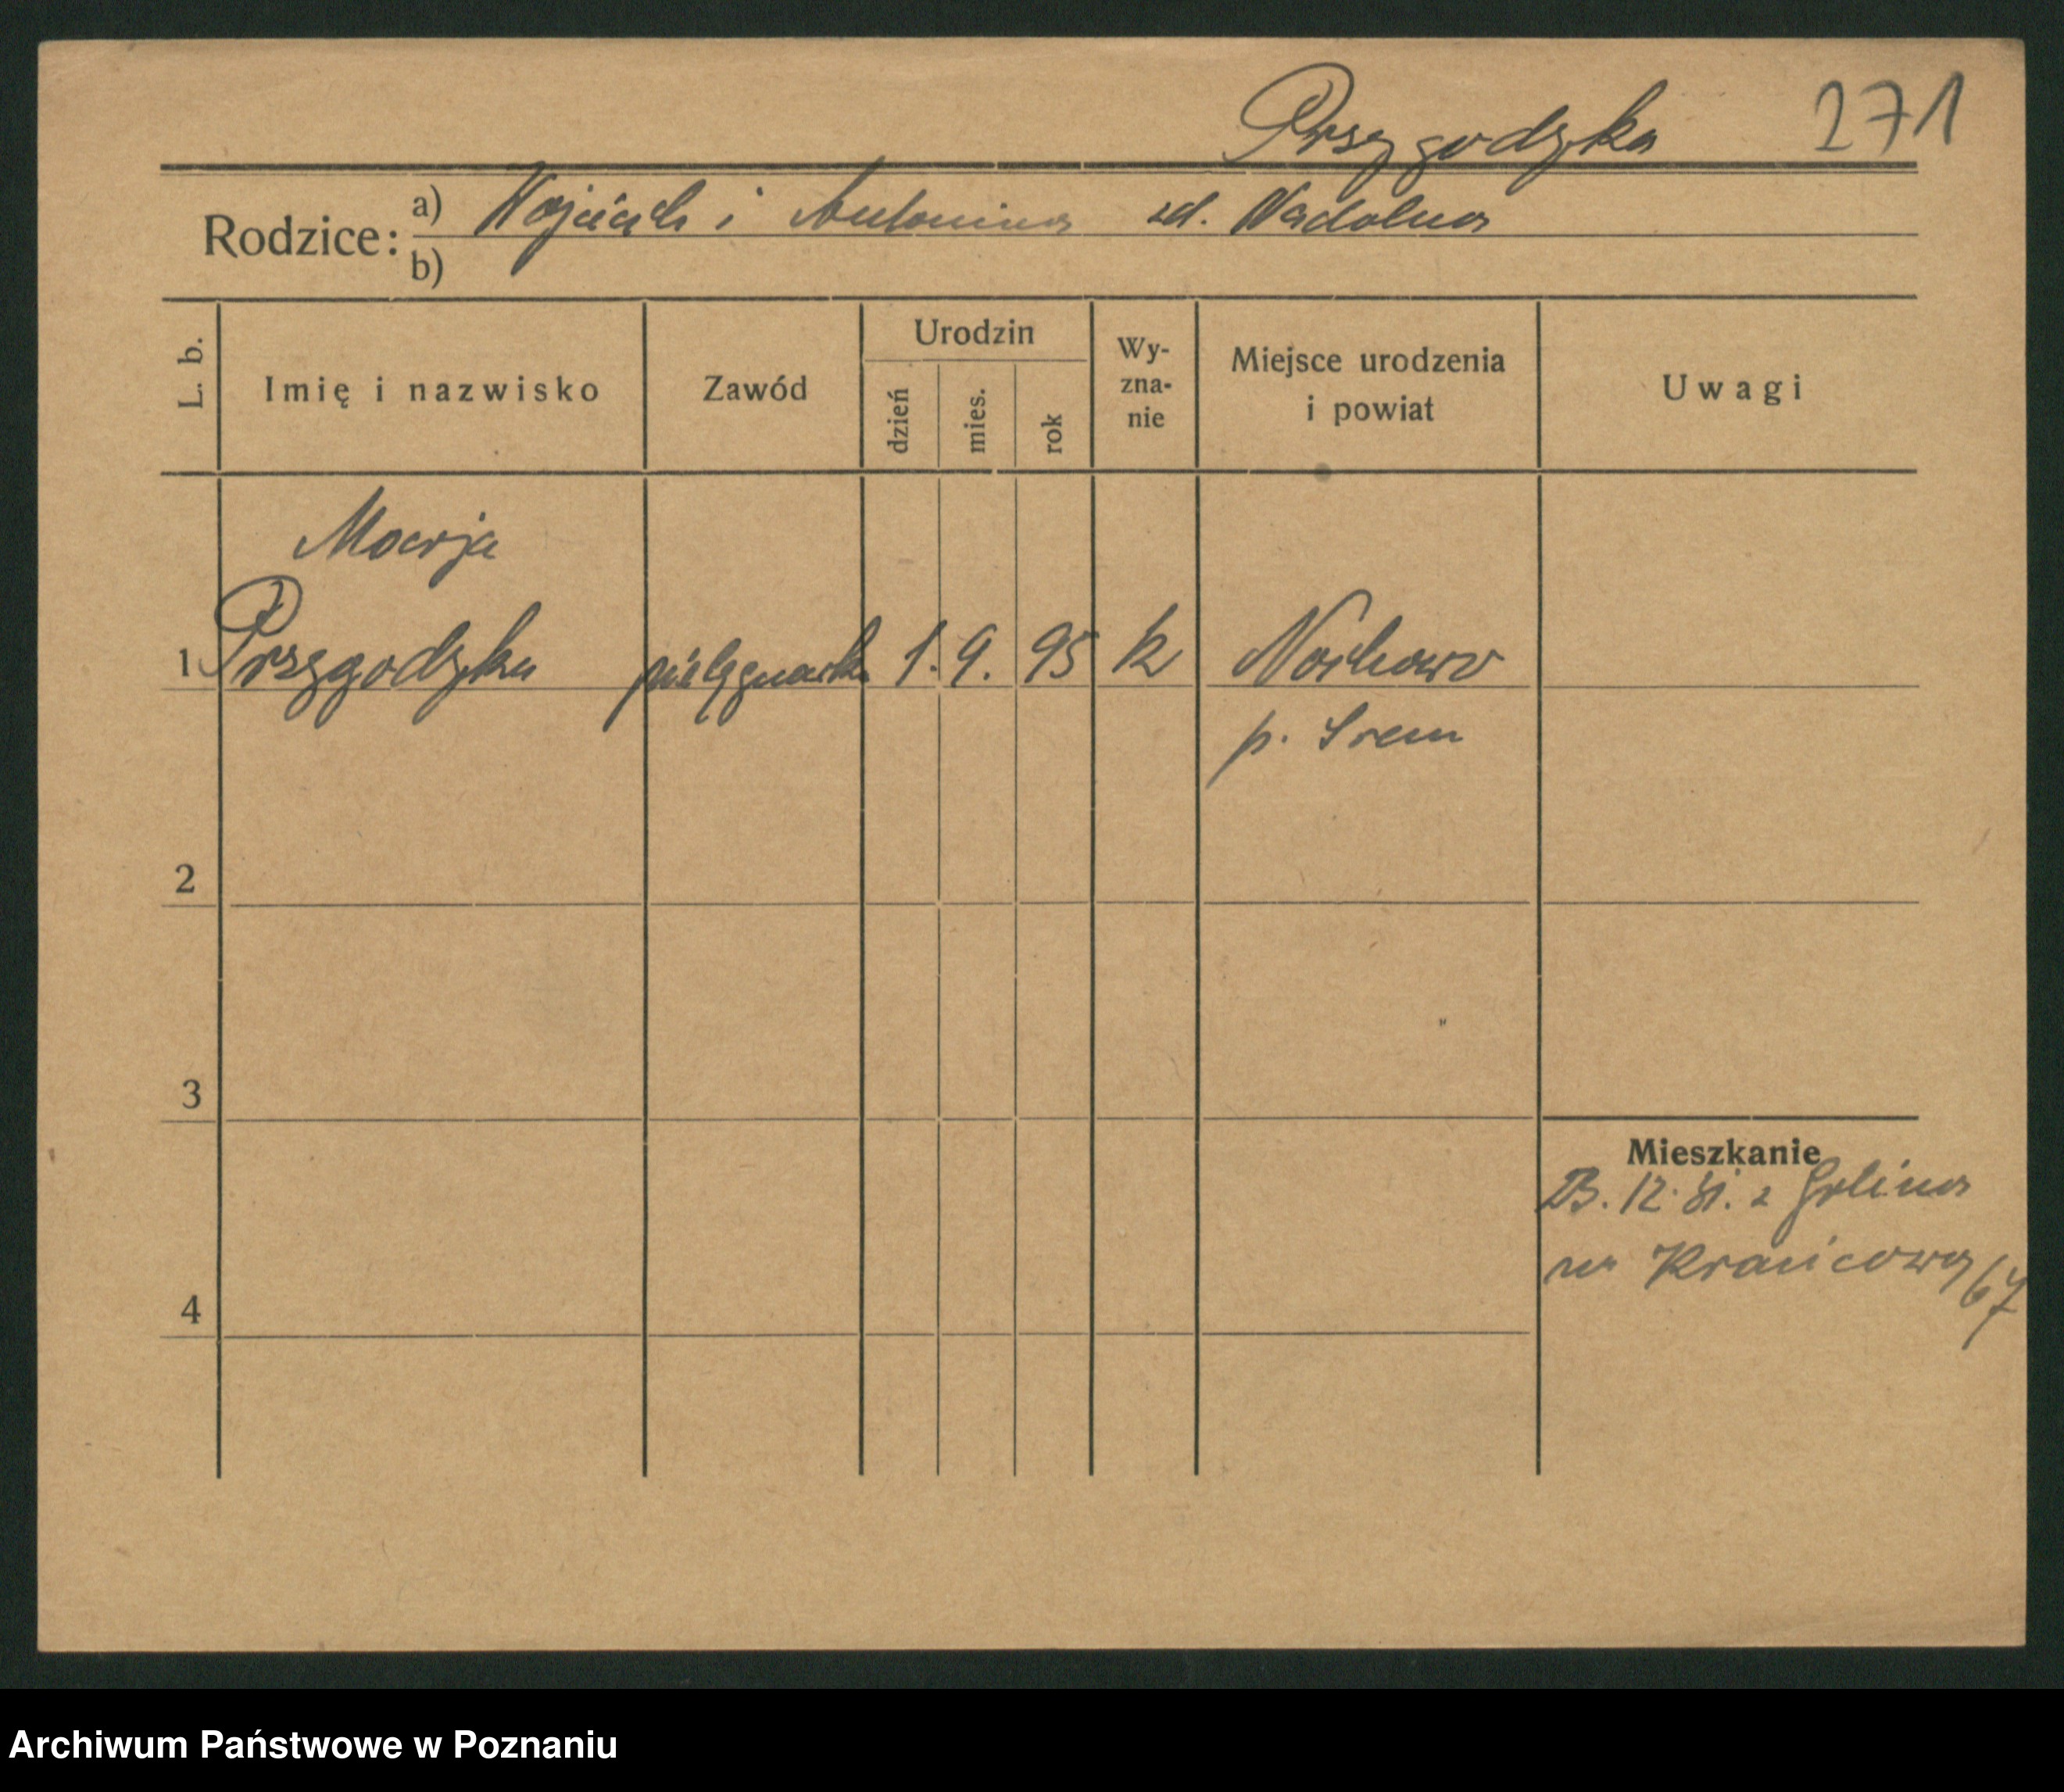 Przygodzka 271
Rodzice: a) Wojciech i Antonina zd. Nadolna
b)
L. b. Imię i nazwisko Zawód Urodzin dzień mies. rok Wy-zna-nie Miejsce urodzenia i powiat Uwagi
Marja
1 Przygodzka pielęgniarka 1. 9. 95 k Nochowo
p. Srem
2
3
Mieszkanie
12. 31. z Golina
Krańcowa 67
4
Archiwum Państwowe w Poznaniu